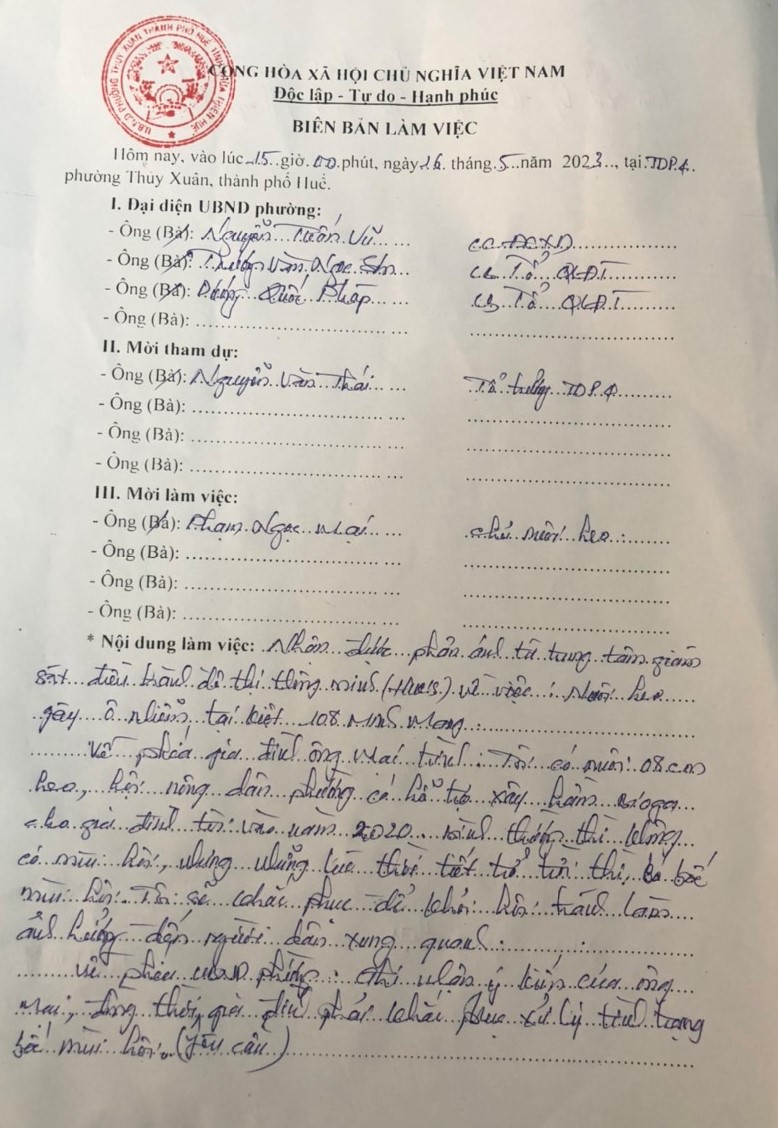 U.B.N.D PHƯỜNG THỦY XUÂN THÀNH PHỐ HUẾ TỈNH THỪA THIÊN HUẾ
CỘNG HÒA XÃ HỘI CHỦ NGHĨA VIỆT NAM
Độc lập - Tự do - Hạnh phúc
BIÊN BẢN LÀM VIỆC
Hôm nay, vào lúc 15 giờ 00 phút, ngày 26 tháng 5 năm 2023, tại TDP.4
phường Thủy Xuân, thành phố Huế.
I. Đại diện UBND phường:
- Ông (Bà): Nguyễn Tuấn Vũ CC ĐCXD
- Ông (Bà): Trương Văn Ngọc Sơn CB Tổ QLĐT
- Ông (Bà): Dương Quốc Pháp CB Tổ QLĐT
- Ông (Bà):
II. Mời tham dự:
- Ông (Bà): Nguyễn Văn Thái Tổ trưởng TDP.4
- Ông (Bà):
- Ông (Bà):
- Ông (Bà):
III. Mời làm việc:
- Ông (Bà): Phạm Ngọc Mại chủ nuôi heo
- Ông (Bà):
- Ông (Bà):
- Ông (Bà):
* Nội dung làm việc: Nhận được phản ánh từ trung tâm giám
sát điều hành đô thị thông minh (HueS) về việc: Nuôi heo
gây ô nhiễm tại kiệt 108 Minh Mạng.
Về phía gia đình ông Mại trình: Tôi có nuôi 08 con
heo, hội nông dân phường có hỗ trợ xây hầm Bioga
cho gia đình tôi vào năm 2020. Bình thường thì không
có mùi hôi, nhưng những lúc thời tiết trở trời thì bốc
mùi hôi. Tôi sẽ khắc phục để khỏi hôi tránh làm
ảnh hưởng đến người dân xung quanh.
Về phía UBND phường: Ghi nhận ý kiến của ông
Mại, đồng thời, gia đình phải khắc phục xử lý tình trạng
bốc mùi hôi. (Yêu cầu)